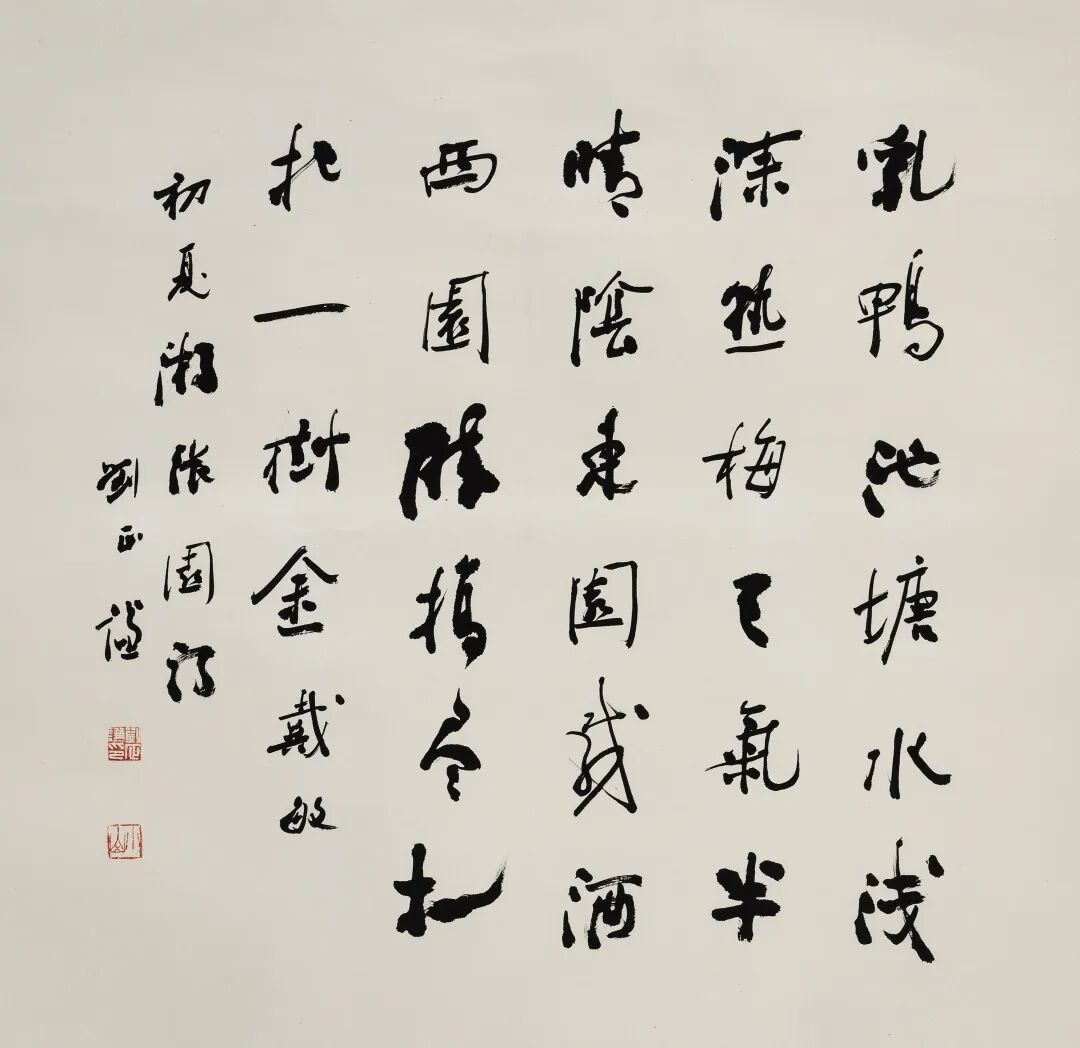 乳鴨池塘水浅
深熟梅天氣半
晴陰東園載酒
西園醉摘尽枇
杷一樹金戴敏
初夏游張園詩
劉正謙